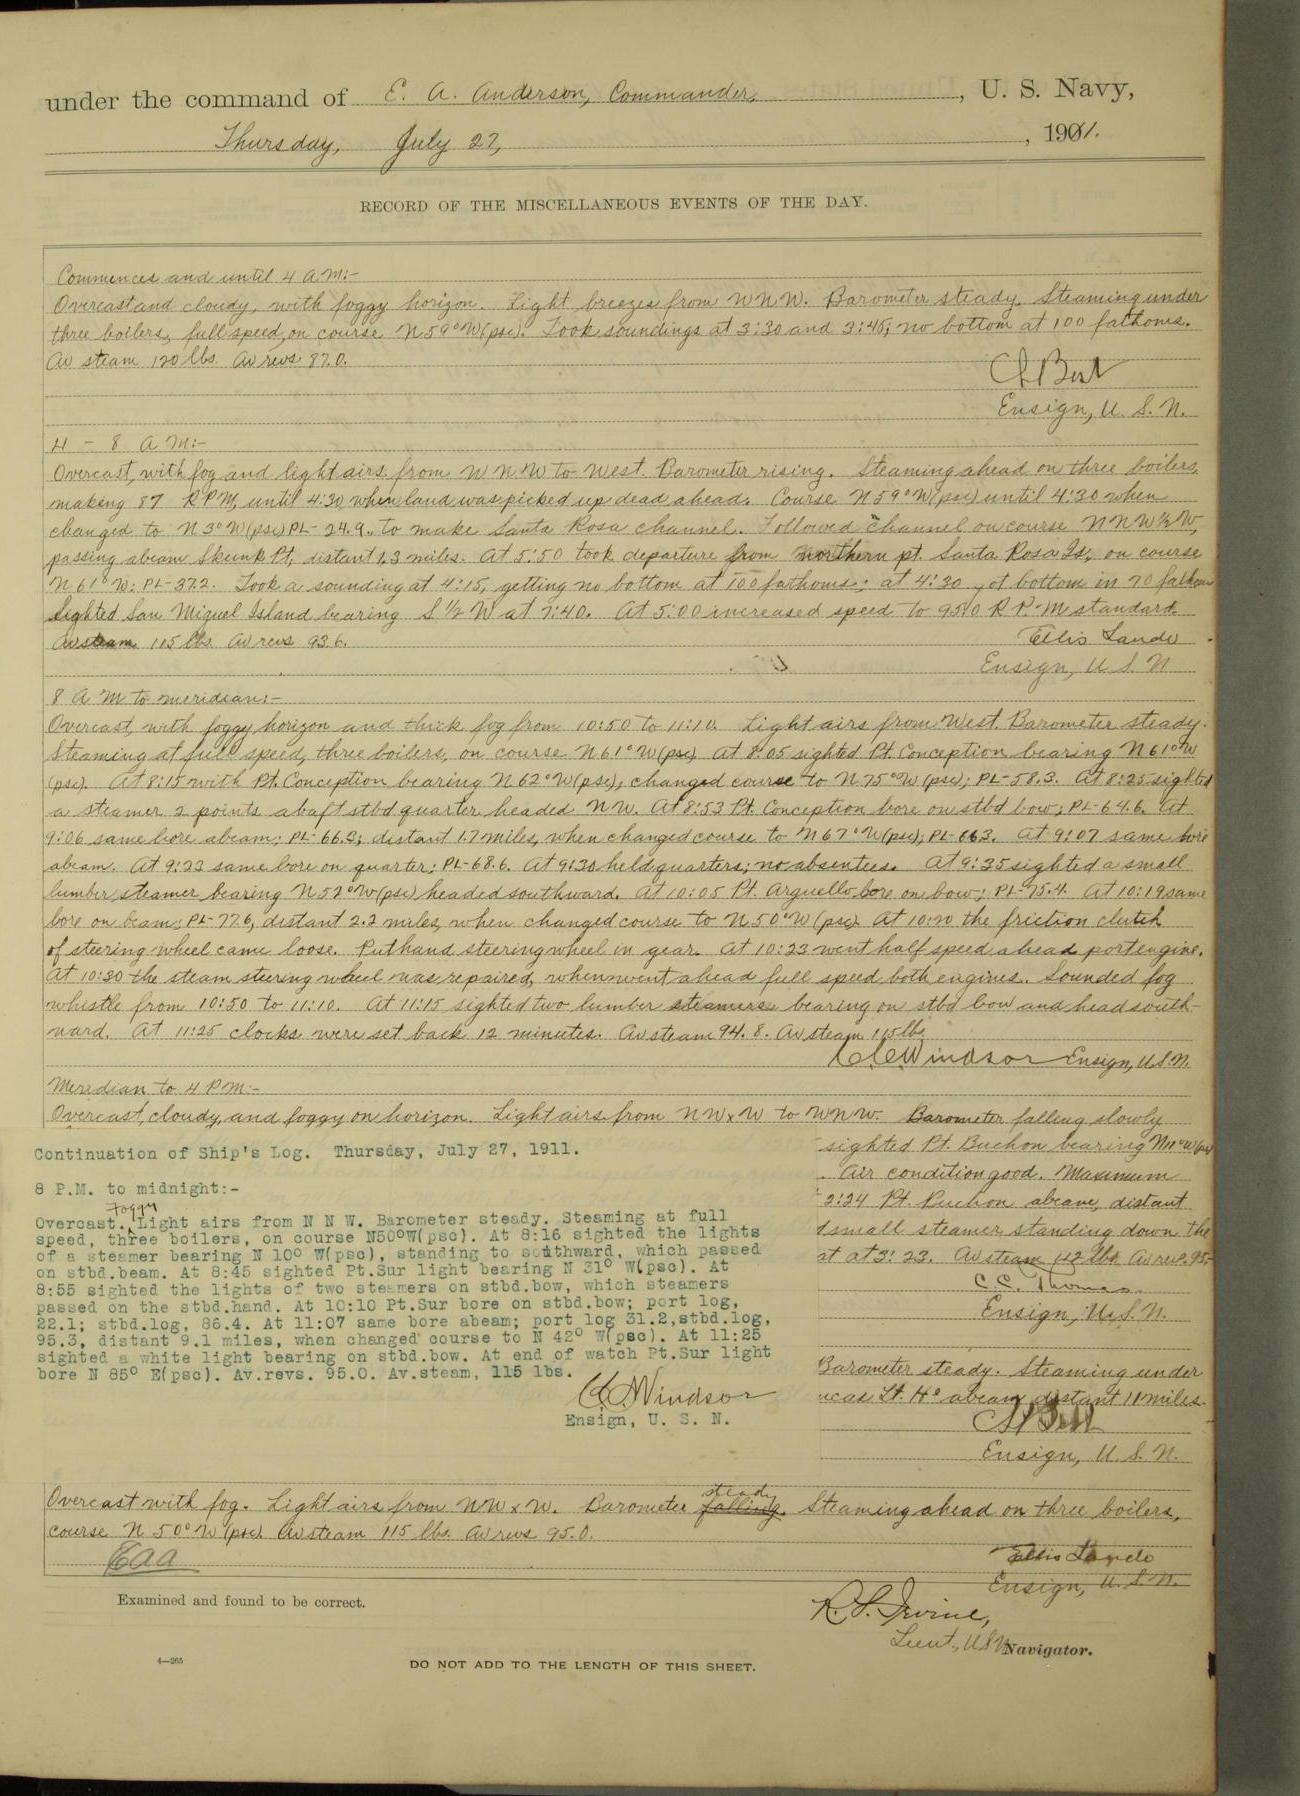 under the command of E. A. Anderson, Commander, U. S. Navy,
Thursday, July 27, 1901.
RECORD OF THE MISCELLANEOUS EVENTS OF THE DAY.
Commences and until 4 A.M:-
Overcast and cloudy, with foggy horizon. Light breezes from WNW. Barometer steady. Steaming under
three boilers, full speed, on course N 59° W (psc). Took soundings at 3:30 and 3:45; no bottom at 100 fathoms.
Av steam 120 lbs. Av revs 87.0.
Ensign, U. S. N.
4 - 8 A M:-
Overcast, with fog and light airs from WNW to West. Barometer rising. Steaming ahead on three boilers,
making 87 R P M, until 4:30 when land was picked up dead ahead. Course N 59° W (psc) until 4:30 when
changed to N 3° W (psc) PL- 24.9. to make Santa Rosa channel. Followed channel on course NNW ½ W,
passing abeam Skunk Pt, distant 1.3 miles. At 5:50 took departure from northern pt. Santa Rosa Is; on course
N 61° W: PL- 37.2. Took a sounding at 4:15, getting no bottom at 100 fathoms; at 4:30 got bottom in 70 fathoms
Sighted San Miguel Island bearing S ½ W at 7:40. At 5:00 increased speed to 95.0 R P M standard
Av steam 115 lbs. Av revs 93.6.
Ellis Lando
Ensign, U S N
8 A M to meridian:-
Overcast, with foggy horizon and thick fog from 10:50 to 11:10. Light airs from West. Barometer steady.
Steaming at full speed, three boilers, on course N 61° W (psc). At 8:05 sighted Pt. Conception bearing N 61° W
(psc). At 8:15 with Pt. Conception bearing N 62° W (psc), changed course to N 75° W (psc); PL- 58.3. At 8:25 sighted
a steamer 2 points abaft stbd quarter headed NW. At 8:53 Pt. Conception bore on stbd bow; PL- 64.6. At
9:06 same bore abeam; PL- 66.3; distant 1.7 miles, when changed course to N 67° W (psc), PL- 66.3. At 9:07 same bore
abeam. At 9:23 same bore on quarter; PL- 68.6. At 9:30 held quarters; no absentees. At 9:35 sighted a small
lumber steamer bearing N 52° W (psc) headed southward. At 10:05 Pt. Arguello bore on bow; PL- 75.4. At 10:19 same
bore on beam; PL- 77.6, distant 2.2 miles, when changed course to N 50° W (psc). At 10:20 the friction clutch
of steering wheel came loose. Put hand steering wheel in gear. At 10:23 went half speed ahead port engine.
At 10:30 the steam steering wheel was repaired, when went ahead full speed both engines. Sounded fog
whistle from 10:50 to 11:10. At 11:15 sighted two lumber steamers bearing on stbd bow and head south-
ward. At 11:25 clocks were set back 12 minutes. Av steam 94.8. Av steam 115 lbs
Windsor Ensign, U.S.N.
Meridian to 4 P M:-
Overcast, cloudy, and foggy on horizon. Light airs from NW x W to WNW. Barometer falling slowly
sighted Pt. Buchon bearing
. Air condition good. Maximum
2:24 Pt Buchon abeam, distant
small steamer standing down the
at 3:23. Av steam 112 lbs Av revs. 95.
C. C. Thomas
Ensign, U.S.N.
Barometer steady. Steaming under
Lt. Ho abeam distant 11 miles.
Ensign, U. S. N.
Continuation of Ship's Log. Thursday, July 27, 1911.
8 P.M. to midnight:-
Foggy
Overcast. Light airs from N N W. Barometer steady. Steaming at full
speed, three boilers, on course N50°W(psc). At 8:16 sighted the lights
of a steamer bearing N 10° W(psc), standing to southward, which passed
on stbd.beam. At 8:45 sighted Pt.Sur light bearing N 31° W(psc). At
8:55 sighted the lights of two steamers on stbd.bow, which steamers
passed on the stbd.hand. At 10:10 Pt.Sur bore on stbd.bow; port log,
22.1; stbd.log, 86.4. At 11:07 same bore abeam; port log 31.2,stbd.log,
95.3, distant 9.1 miles, when changed course to N 42° W(psc). At 11:25
sighted a white light bearing on stbd.bow. At end of watch Pt.Sur light
bore N 85° E(psc). Av.revs. 95.0. Av.steam, 115 lbs.
Windsor
Ensign, U. S. N.
Overcast with fog. Light airs from NW x W. Barometer falling steady. Steaming ahead on three boilers,
course N 50° W (psc) Av steam 115 lbs. Av revs 95.0.
Ellis Lando
Ensign, U. S. N.
EAA
Examined and found to be correct.
R. S. Irvine,
Lieut., USN Navigator.
4—265
DO NOT ADD TO THE LENGTH OF THIS SHEET.